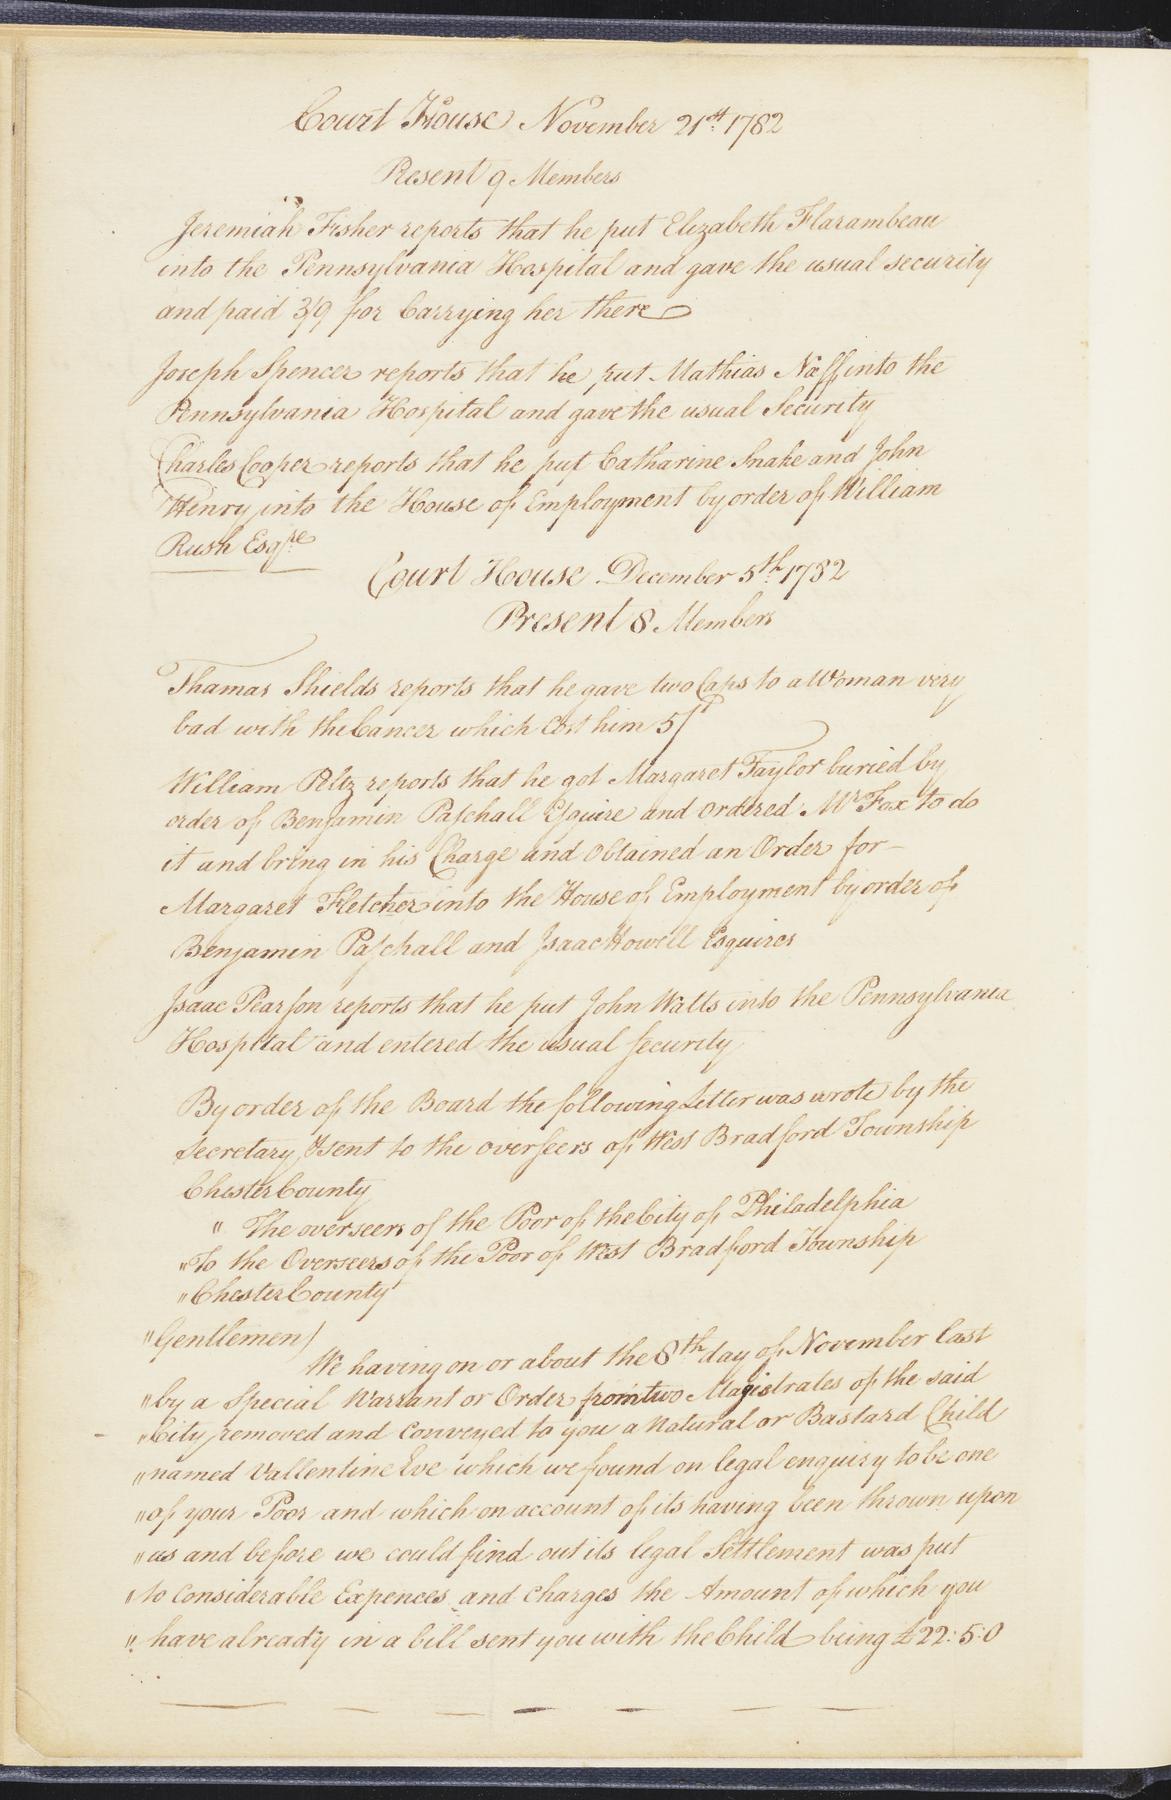 Court House November 21st 1782
Present 9 Members
Jeremiah Fisher reports that he put Elizabeth Flarambeau
into the Pennsylvania Hospital and gave the usual security
and paid 3/9 for Carrying her there
Joseph Spencer reports that he put Mathias Naff into the
Pennsylvania Hospital and gave the usual Security
Charles Cooper reports that he put Catharine Snake and John
Henry into the House of Employment by order of William
Rush Esqre
Court House December 5th 1782
Present 8 Members
Thamas Shields reports that he gave two Caps to a Woman very
bad with the Cancer which Cost him 5/
William Peltz reports that he got Margaret Taylor buried by
order of Benjamin Paschall Esquire and ordered Mr Fox to do
it and bring in his Charge and obtained an Order for
Margaret Fletcher into the House of Employment by order of
Benjamin Paschall and Isaac Howell Esquires
Isaac Pearson reports that he put John Watts into the Pennsylvania
Hospital and entered the usual security
By order of the Board the following Letter was wrote by the
Secretary & sent to the overseers of West Bradford Township
Chester County
" The overseers of the Poor of the City of Philadelphia
" To the Overseers of the Poor of West Bradford Township
" Chester County
" Gentlemen/
We having on or about the 8th day of November last
" by a Special Warrant or Order from two Magistrates of the said
" City, removed and Conveyed to you a Natural or Bastard Child
" named Vallentine Eve which we found on legal enquiry to be one
" of your Poor and which on account of its having been thrown upon
" us and before we could find out its legal Settlement was put
" to Considerable Expences and Charges the Amount of which you
" have already in a bill sent you with the Child being £22:5:0